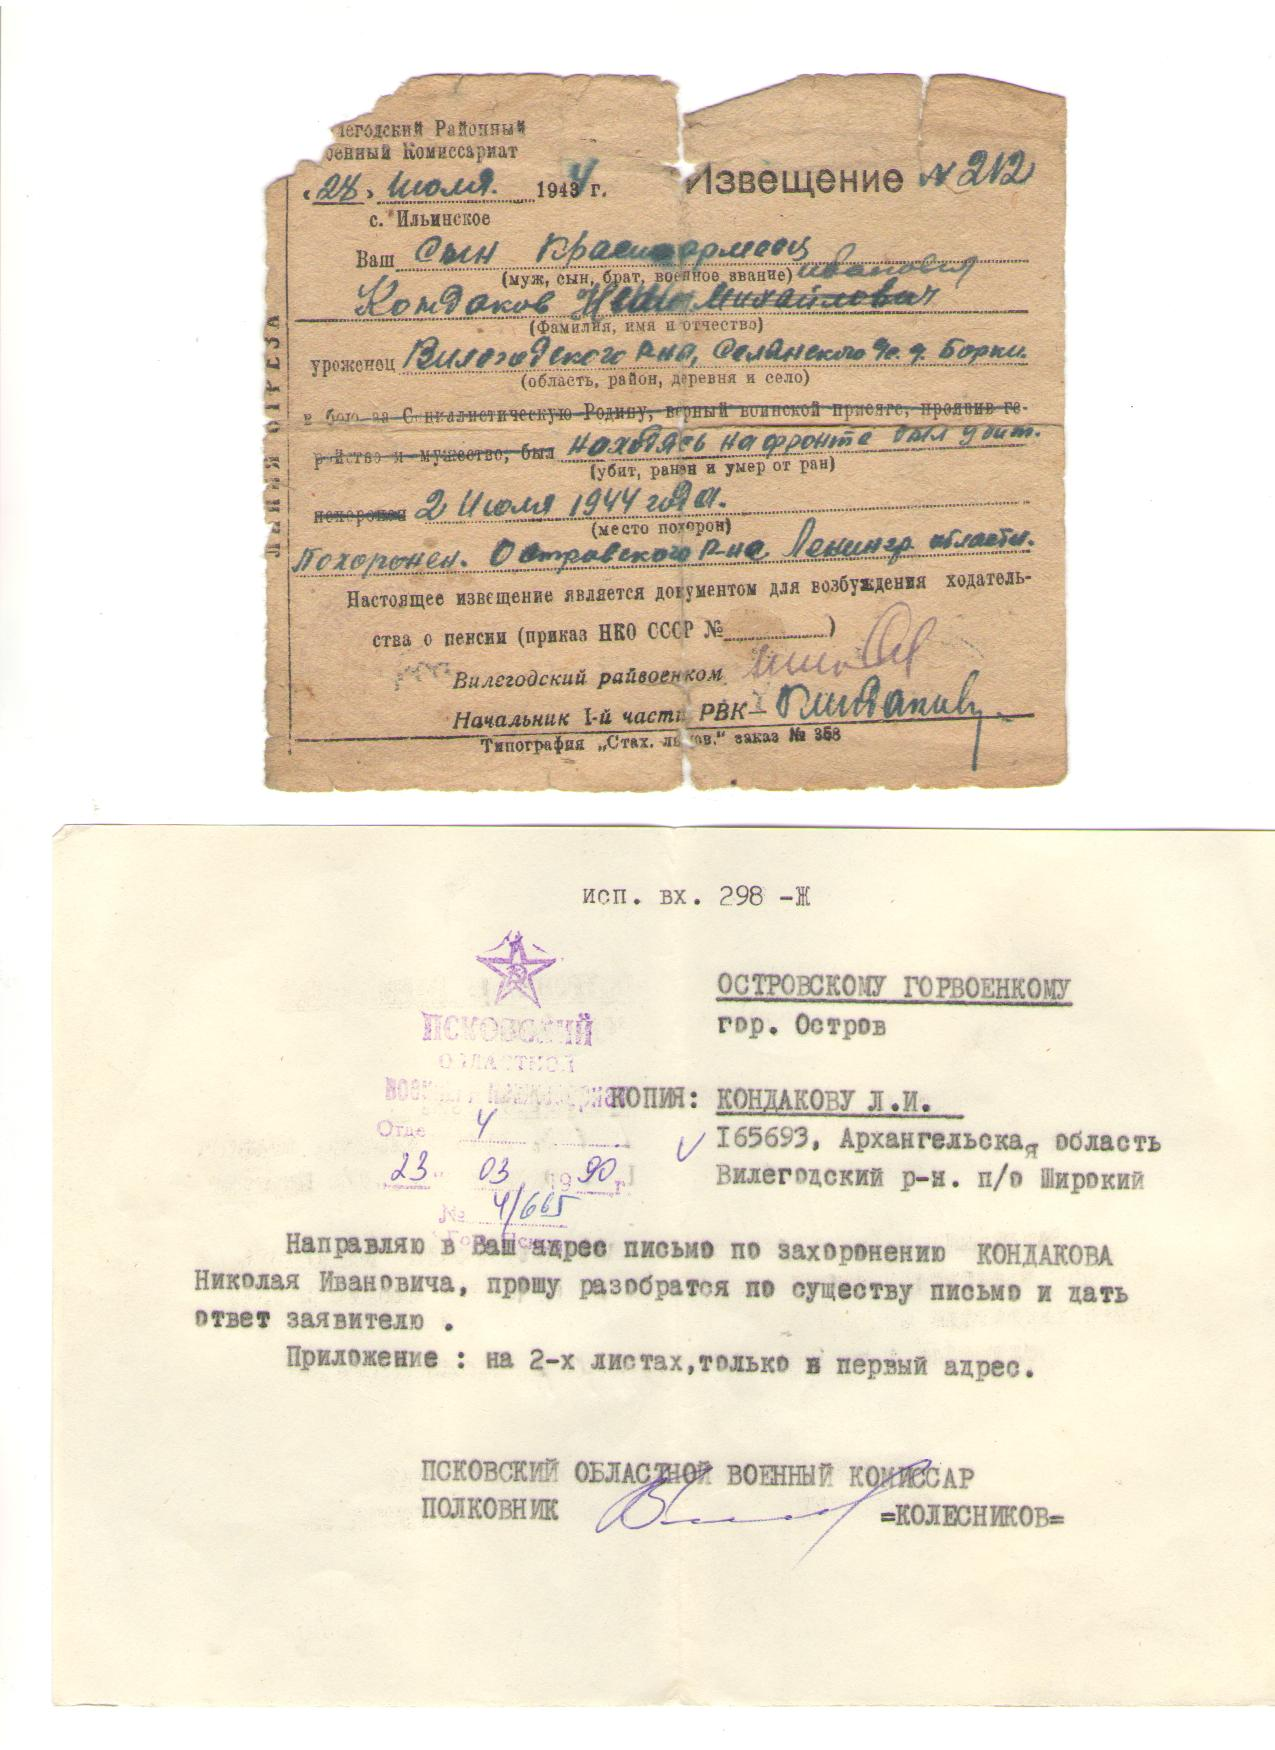 легодский Районный
оенный Комиссариат
«28» Июля. 1944 г.
Извещение N 212
с. Ильинское
Ваш Сын красноармеец
(муж, сын, брат, военное звание) Иванович
Кондаков Михайлович
(Фамилия, имя и отчество)
уроженец Вилегодского р-на, Селянского с. д. Борки.
(область, район, деревня и село)
в бою за Социалистическую Родину, верный воинской присяге, проявив ге-
ройство и мужество, был находясь на фронте был убит.
(убит, ранен и умер от ран)
похоронен 2 Июля 1944 года.
(место похорон)
Похоронен. Островского р-на Ленингр. области.
Настоящее извещение является документом для возбуждения ходатель-
ства о пенсии (приказ НКО СССР № )
Вилегодский райвоенком
Начальник I-й части РВК
Типография „Стах. льнов." заказ № 358
ЛИНИЯ ОТРЕЗА
исп. вх. 298 -Ж
ПСКОВСКИЙ
ОБЛАСТНОЙ
Отде 4
23 03 1990 г
№ 4/665
ОСТРОВСКОМУ ГОРВОЕНКОМУ
гор. Остров
КОПИЯ: КОНДАКОВУ Л.И.
I65693, Архангельская область
Вилегодский р-н. п/о Широкий
Направляю в Ваш адрес письмо по захоронению КОНДАКОВА
Николая Ивановича, прошу разобратся по существу письмо и дать
ответ заявителю .
Приложение : на 2-х листах,только в первый адрес.
ПСКОВСКИЙ ОБЛАСТНОЙ ВОЕННЫЙ КОМИССАР
ПОЛКОВНИК =КОЛЕСНИКОВ=